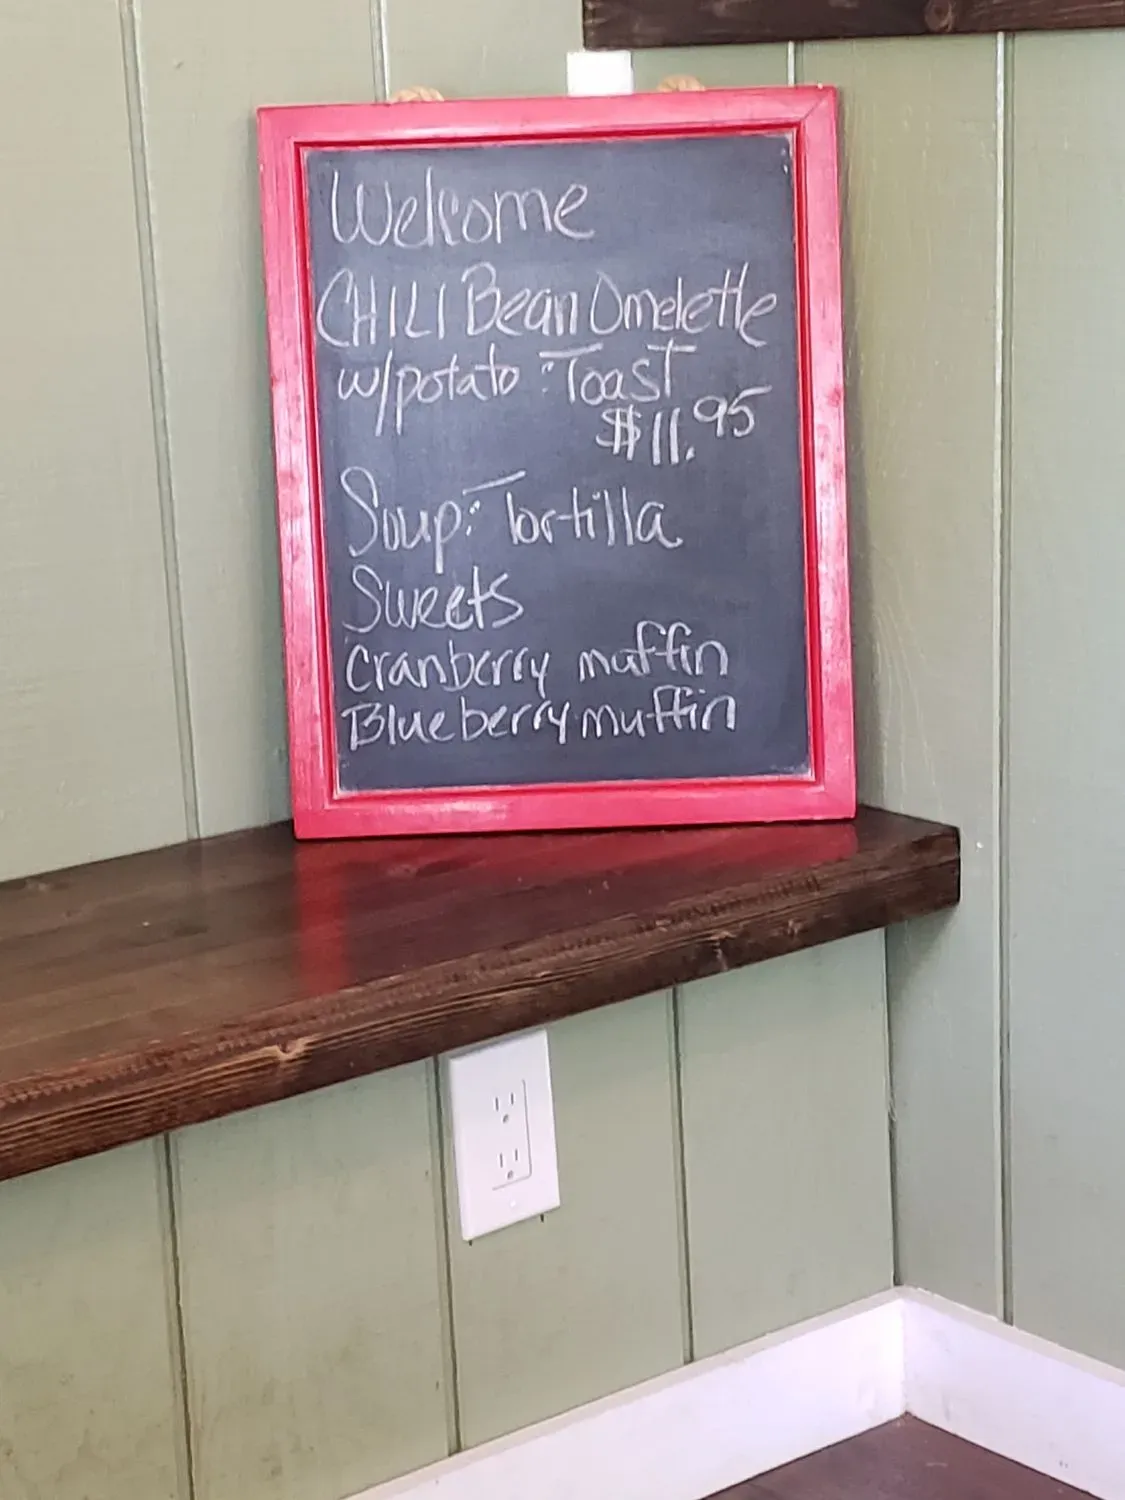 Welcome
CHILI Bean Omelette
w/potato : Toast
$11.95
Soup: Tortilla
Sweets
Cranberry muffin
Blueberry muffin